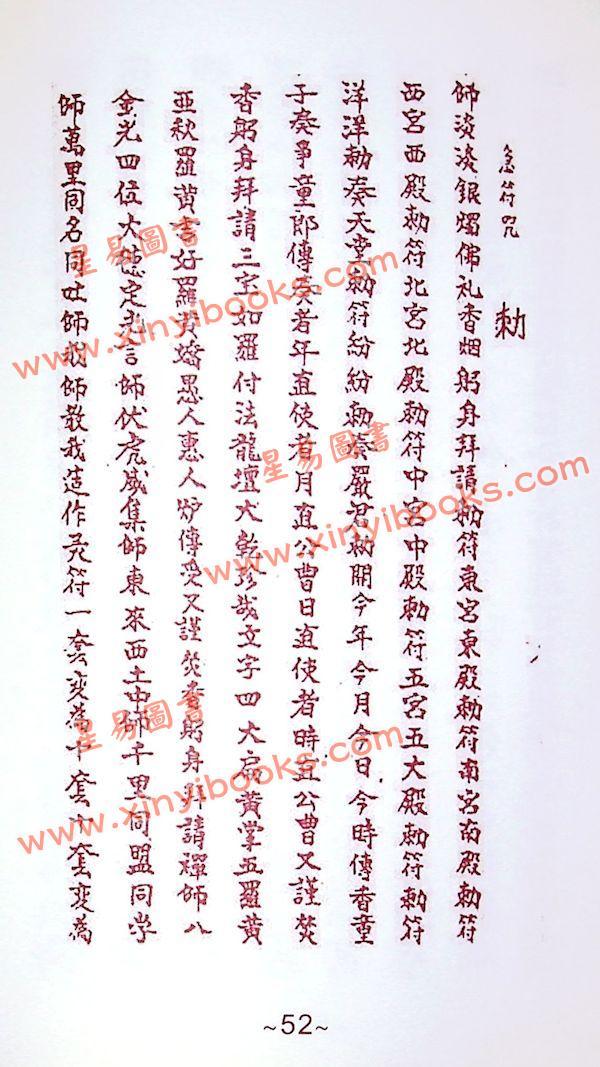 急符咒
勅
師淡淡銀燭佛礼香烟躬身拜請勅符東宮東殿勅符南宮南殿勅符
西宮西殿勅符北宮北殿勅符中宮中殿勅符五宮五大殿勅符勅符
洋洋勅奏天堂勅符紛紛勅奏嚴君勅開今年今月今日今時傳香童
子奏事童郎傳奏者年直使者月直公曹日直使者時直公曹又謹焚
香躬身拜請三宝如羅付法龍壇大教珍哉文字四大扁黄掌五羅黄
亞秋羅黄書好羅黄嬌愚人惠人炉傳受又謹焚香躬身拜請禪師八
金光四位大穂定光言師伏虎威集師東來西土中師千里同盟同学
師萬里同名同吐師我師教我造作灵符一套变為十套十套变為
~52~
星易圖書
www.xinyibooks.com
星易圖書
www.xinyibooks.com
星易圖書
www.xinyibooks.com